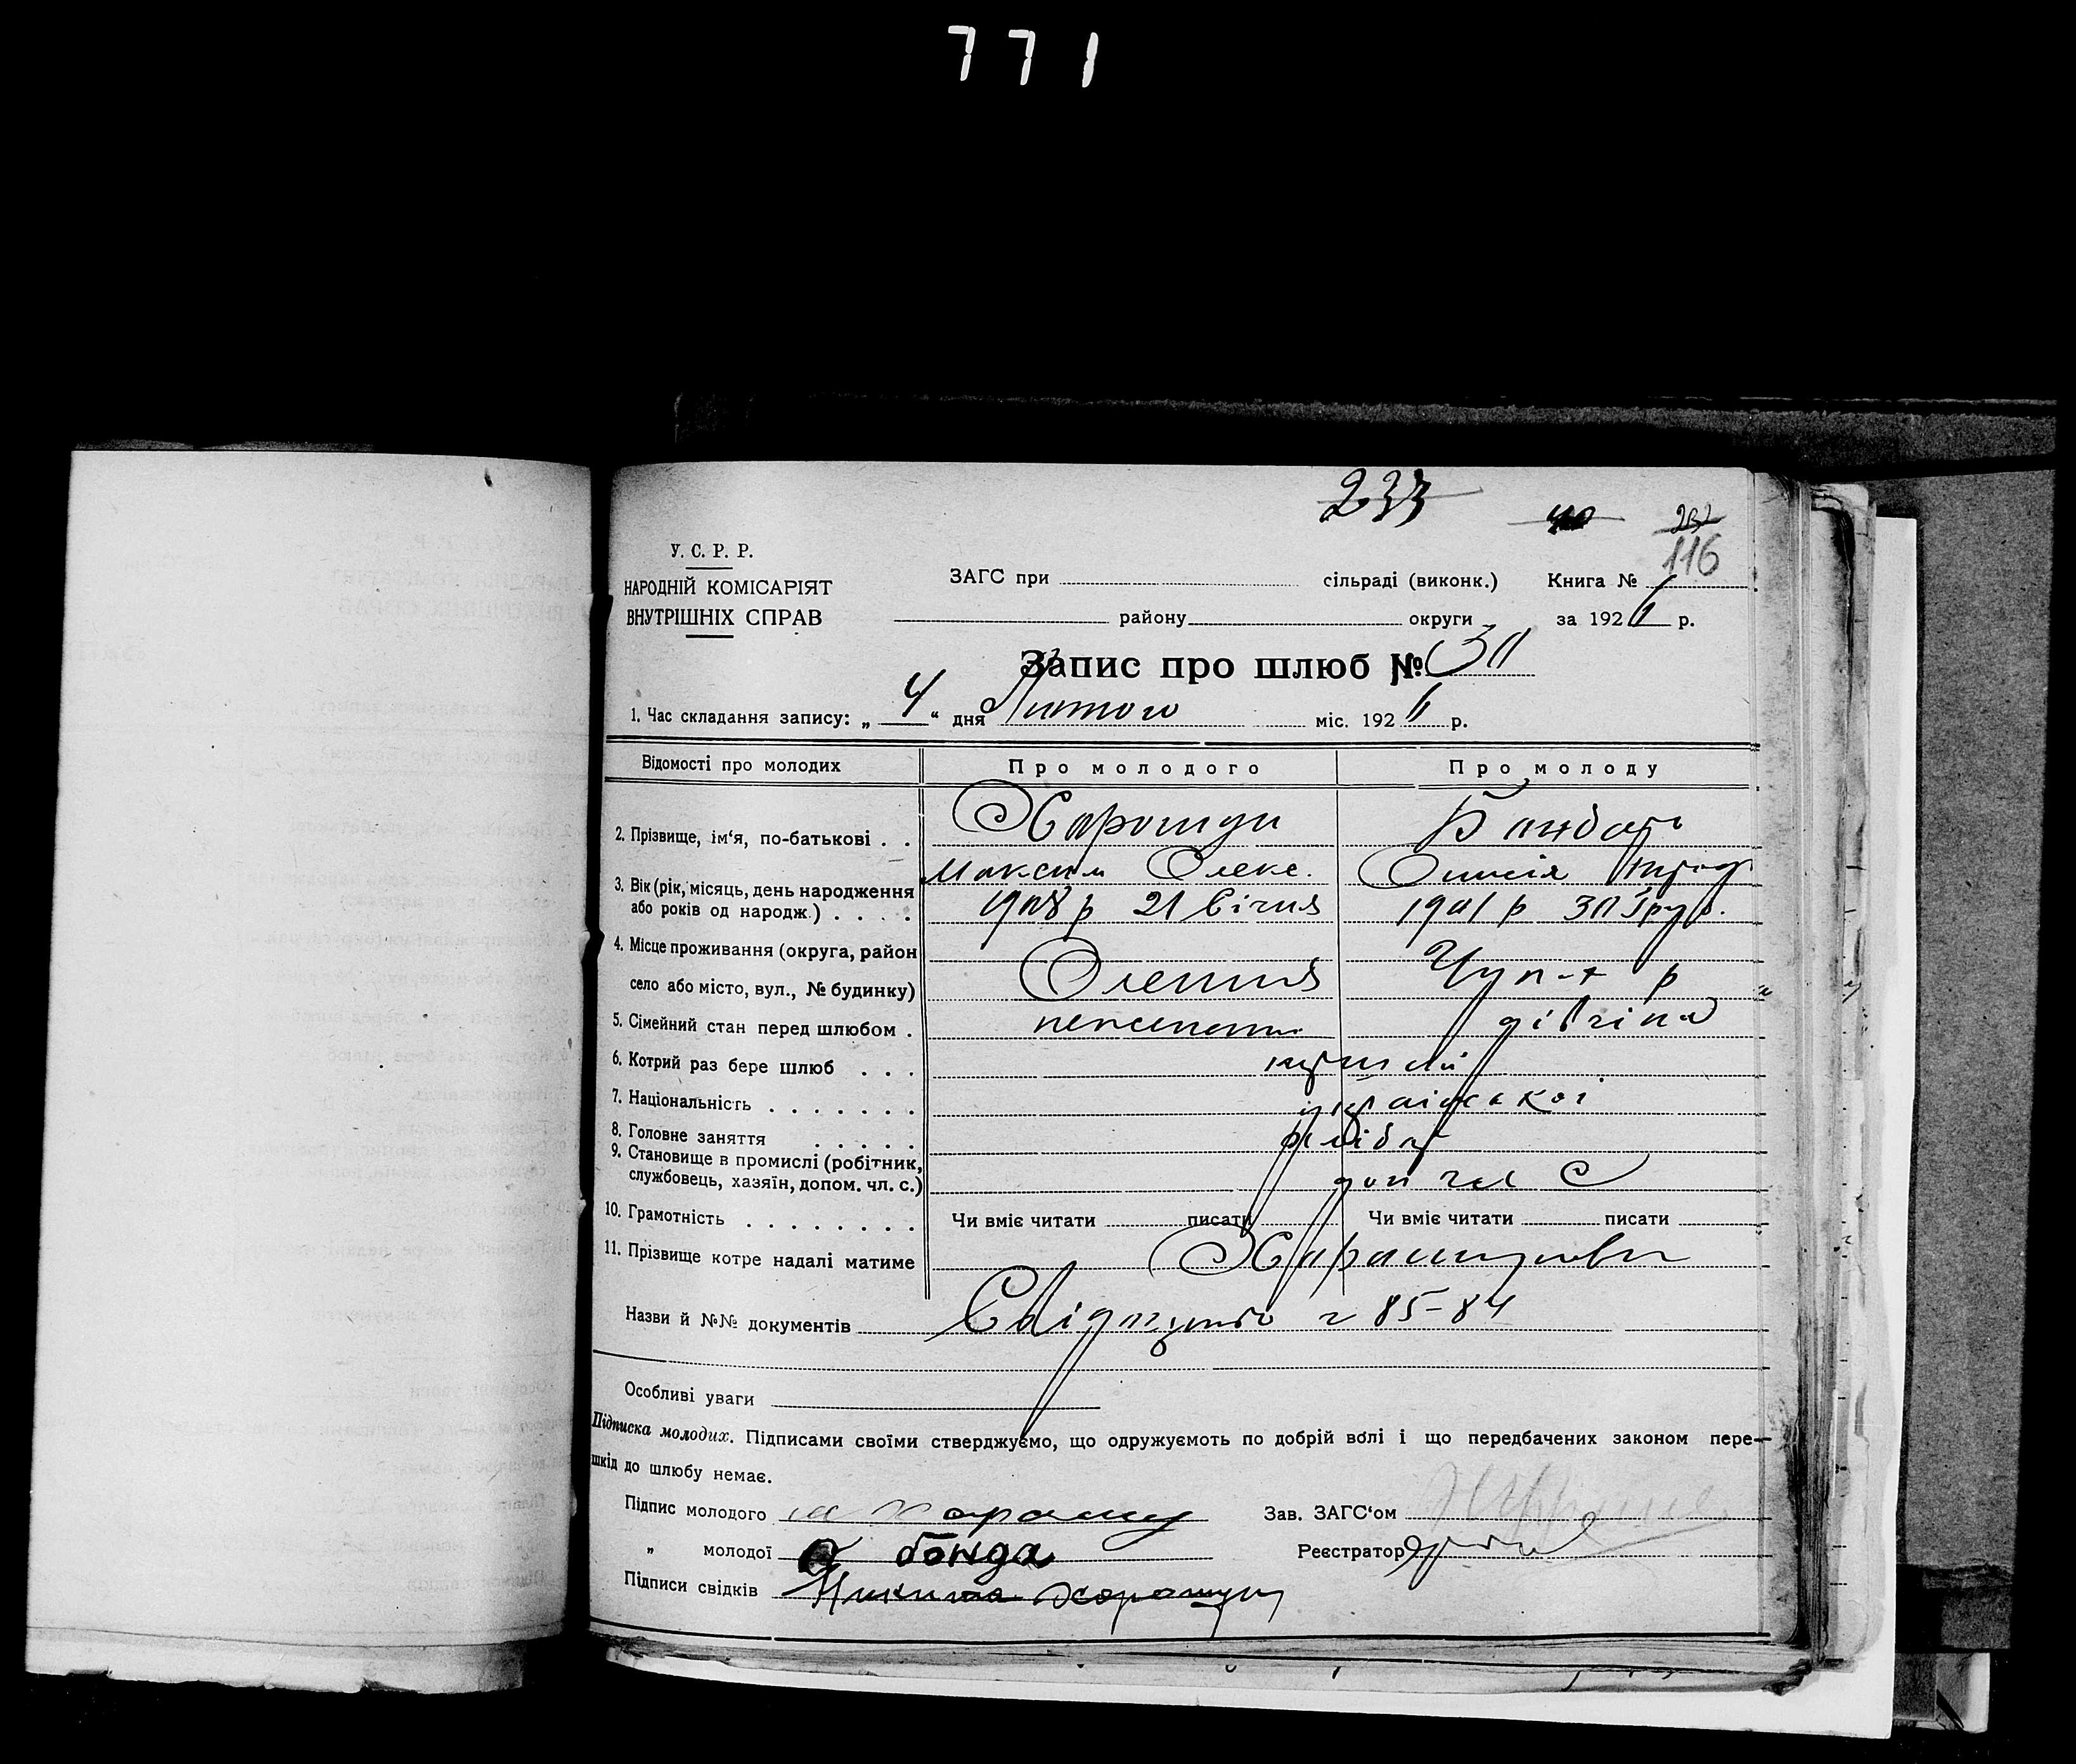 771
233
40
232
116
У. С. Р. Р.
НАРОДНІЙ КОМІСАРІЯТ
ВНУТРІШНІХ СПРАВ
ЗАГС при сільраді (виконк.) Книга №
району округи за 192 р.
Запис про шлюб № 30
1. Час складання запису: „ 4 “ дня Лютого міс. 192 р.
Відомості про молодих Про молодого Про молоду
2. Прізвище, ім‘я, по-батькові . . Харошун Бандарь
Максим Олекс.
3. Вік (рік, місяць, день народження
або років од народж.) . . . . 1908 р 21 Січня 1901 р 30 Груд.
4. Місце проживання (округа, район
село або місто, вул., № будинку)
5. Сімейний стан перед шлюбом . дівчина
6. Котрий раз бере шлюб . . . перший
7. Національність . . . . . . . української
8. Головне заняття . . . . .
9. Становище в промислі (робітник,
службовець, хазяїн, допом. чл. с.) доп чл С
10. Грамотність . . . . . . . . Чи вміє читати писати Чи вміє читати писати
11. Прізвище котре надалі матиме
Назви й №№ документів 85-84
Особливі уваги
Підписка молодих. Підписами своїми стверджуємо, що одружуємоть по добрій волі і що передбачених законом пере-
шкід до шлюбу немає.
Підпис молодого Зав. ЗАГС‘ом
„ молодої бонда Реєстратор
Підписи свідків Микита Хорошун